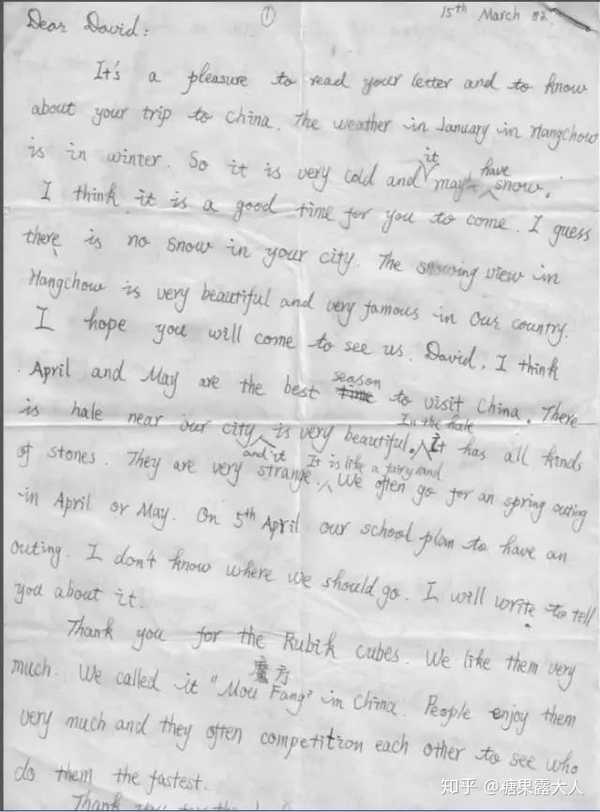 ①
15th March 82
Dear David:
It's a pleasure to read your letter and to know
about your trip to China. The weather in January in Hangchow
is in winter. So it is very cold and it may have snow.
I think it is a good time for you to come. I guess
there is no snow in your city. The snowing view in
Hangchow is very beautiful and very famous in our country.
I hope you will come to see us. David, I think
April and May are the best season to visit China. There
is hale near our city and it is very beautiful. In the hale it has all kinds
of stones. They are very strange. It is like a fairy land We often go for an spring outing
in April or May. On 5th April our school plan to have an
outing. I don't know where we should go. I will write to tell
you about it.
Thank you for the Rubik cubes. We like them very
much. We called it "Mou Fang" 魔方 in China. People enjoy them
very much and they often competition each other to see who
do them the fastest.
Thank you for the
知乎 @糖果露大人